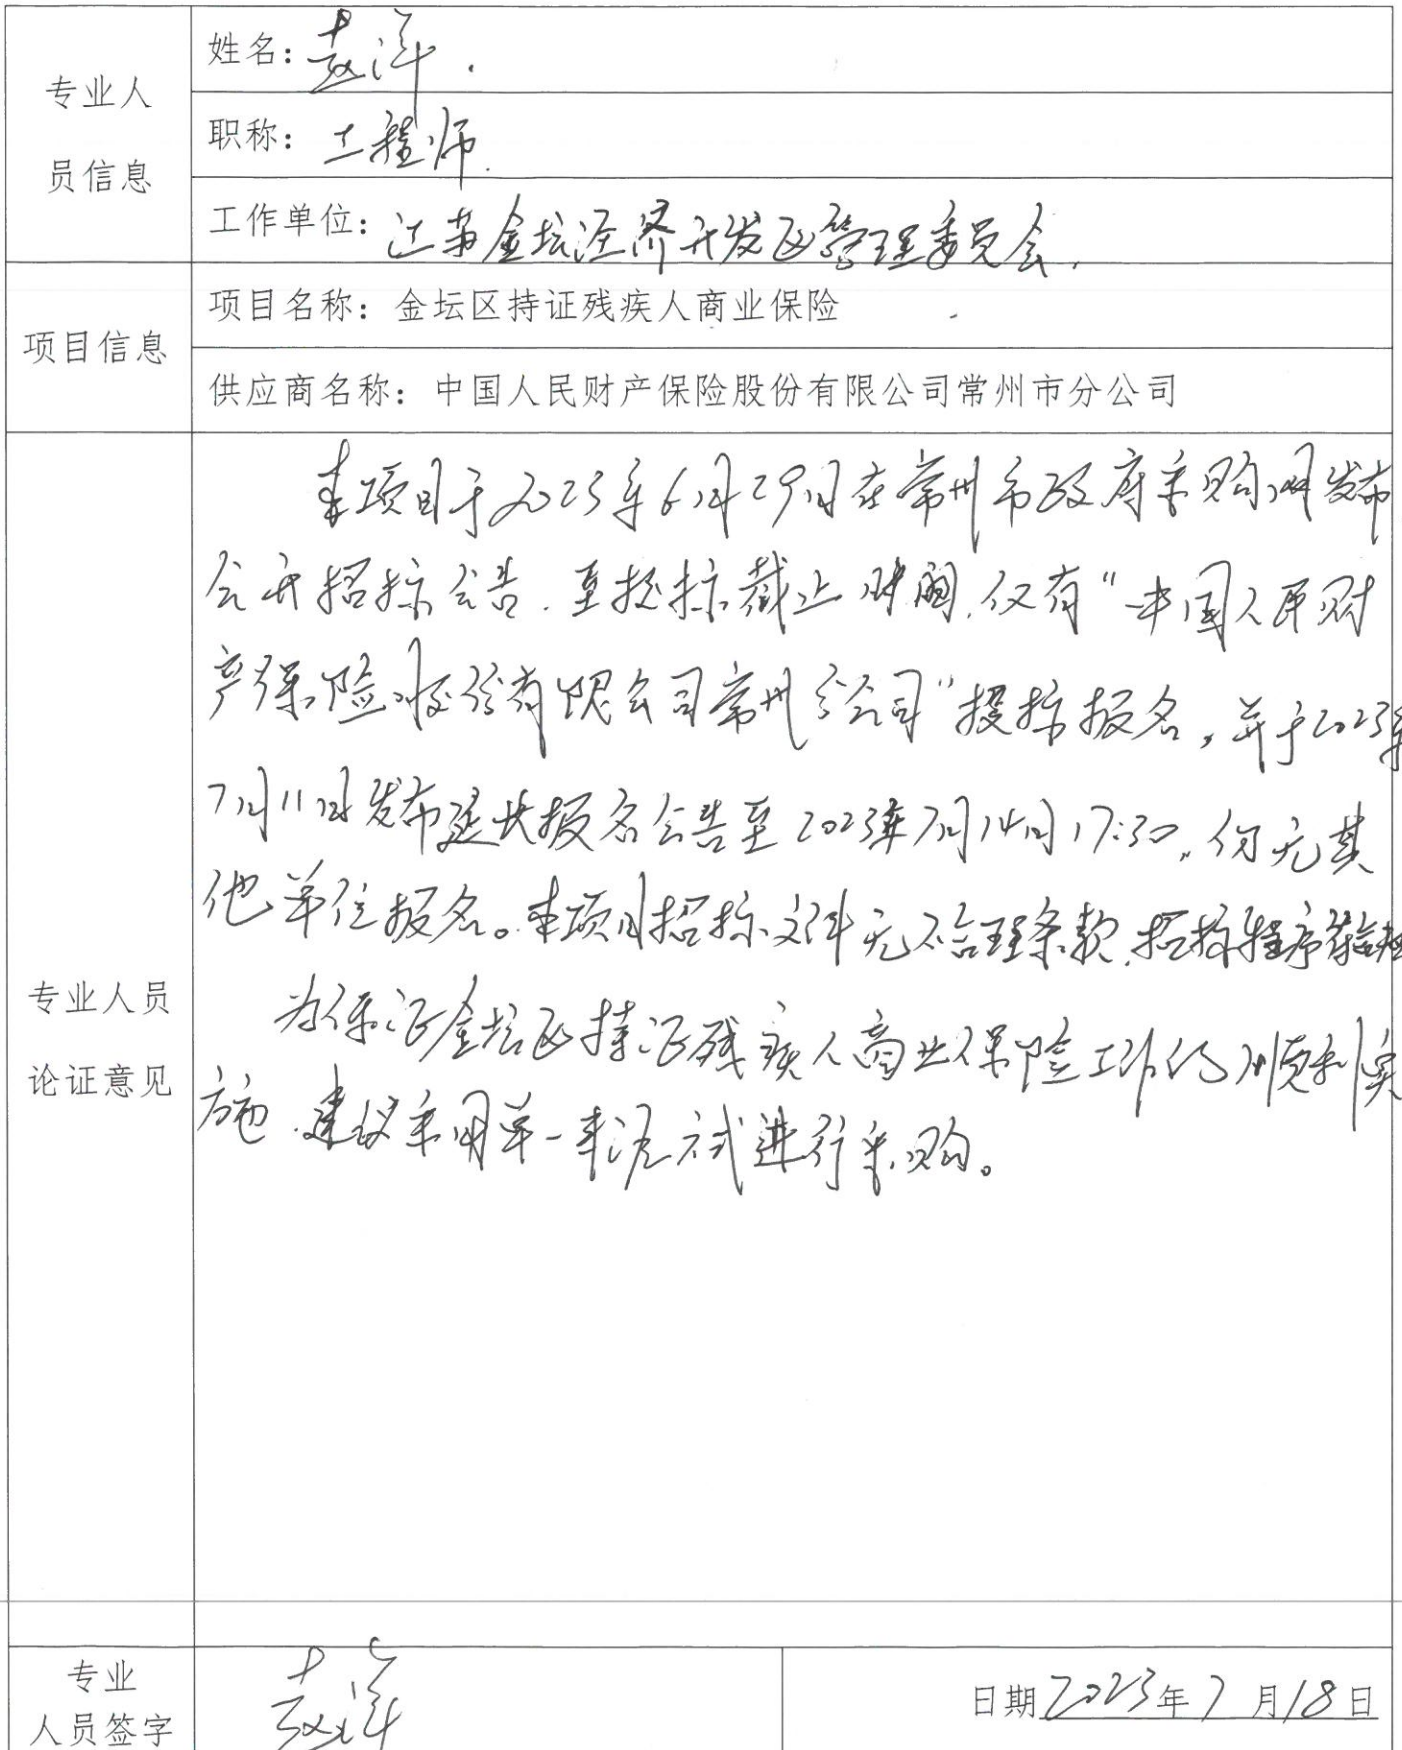 专业人
员信息
姓名：袁洋.
职称：工程师.
工作单位：江苏金坛经济开发区管理委员会.
项目信息
项目名称：金坛区持证残疾人商业保险
供应商名称：中国人民财产保险股份有限公司常州市分公司
专业人员
论证意见
本项目于2023年6月29日在常州市政府采购网发布
公开招标公告.至投标截止时间,仅有"中国人民财
产保险股份有限公司常州分公司"投标报名,并于2023年
7月11日发布延长报名公告至2023年7月14日17:30,仍无其
他单位报名。本项目招标文件无不合理条款,招标程序
为保证金坛区持证残疾人商业保险工作的顺利实
施.建议采用单一来源方式进行采购。
专业
人员签字
袁洋
日期2023年7月18日